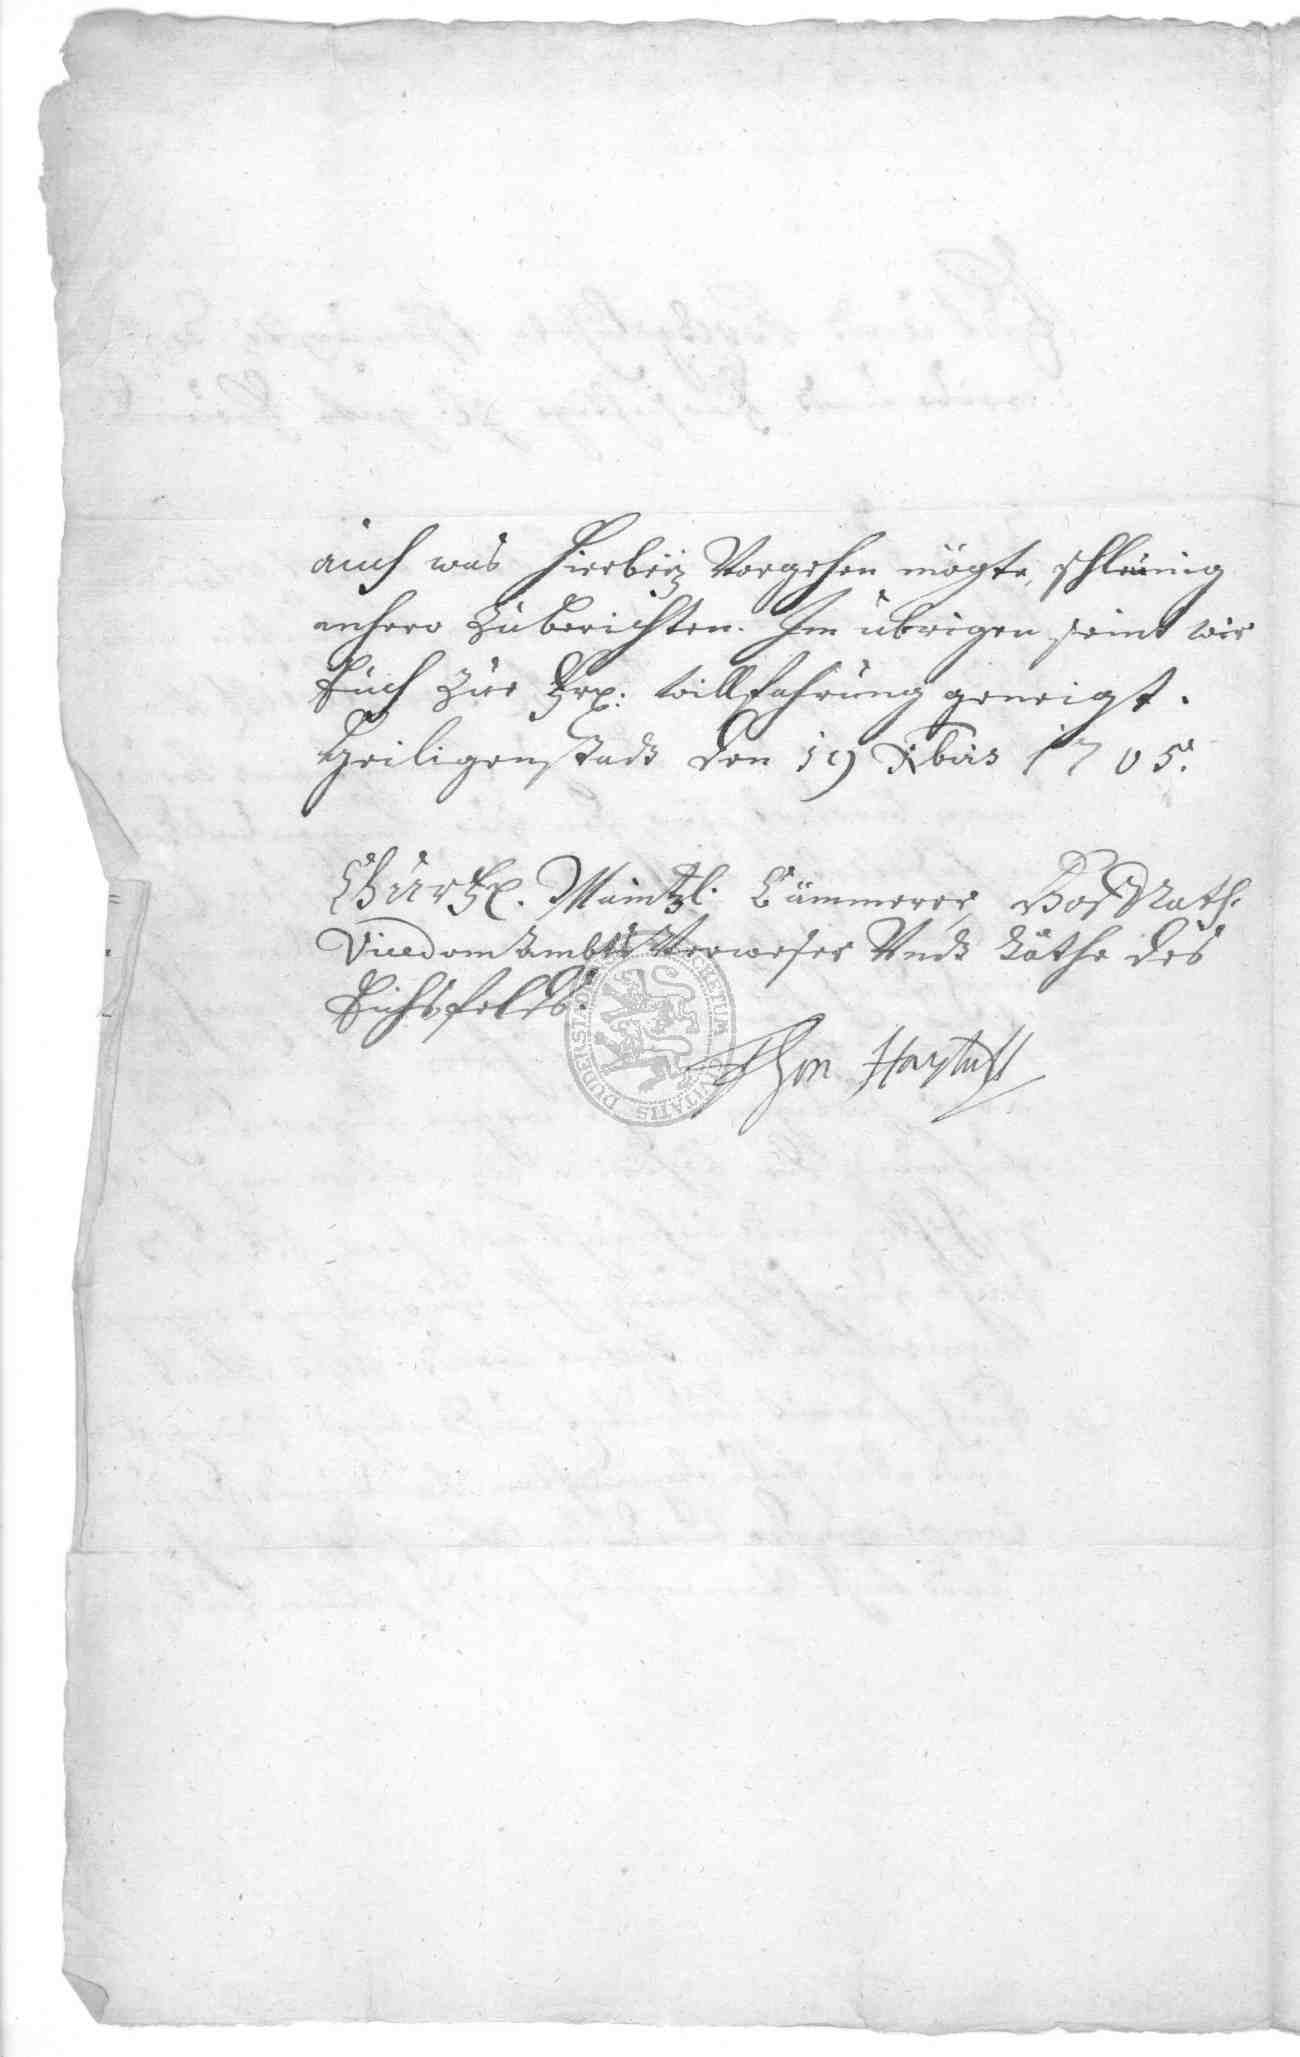 auch was hierbeÿ Vorgehen mögte, schleünig
anhero Zuberichten. Im übrigen seint wir
Euch Zur Frz: willfahrung geneigt.
Heiligenstadt den 19 Xbris 1705.
Churfl. Maintzl. Cämmerer, HofRath,
VicedomAmbts Verweser Undt Räthe des
Eichsfelds.
CIVITATIS DUDERSTAD